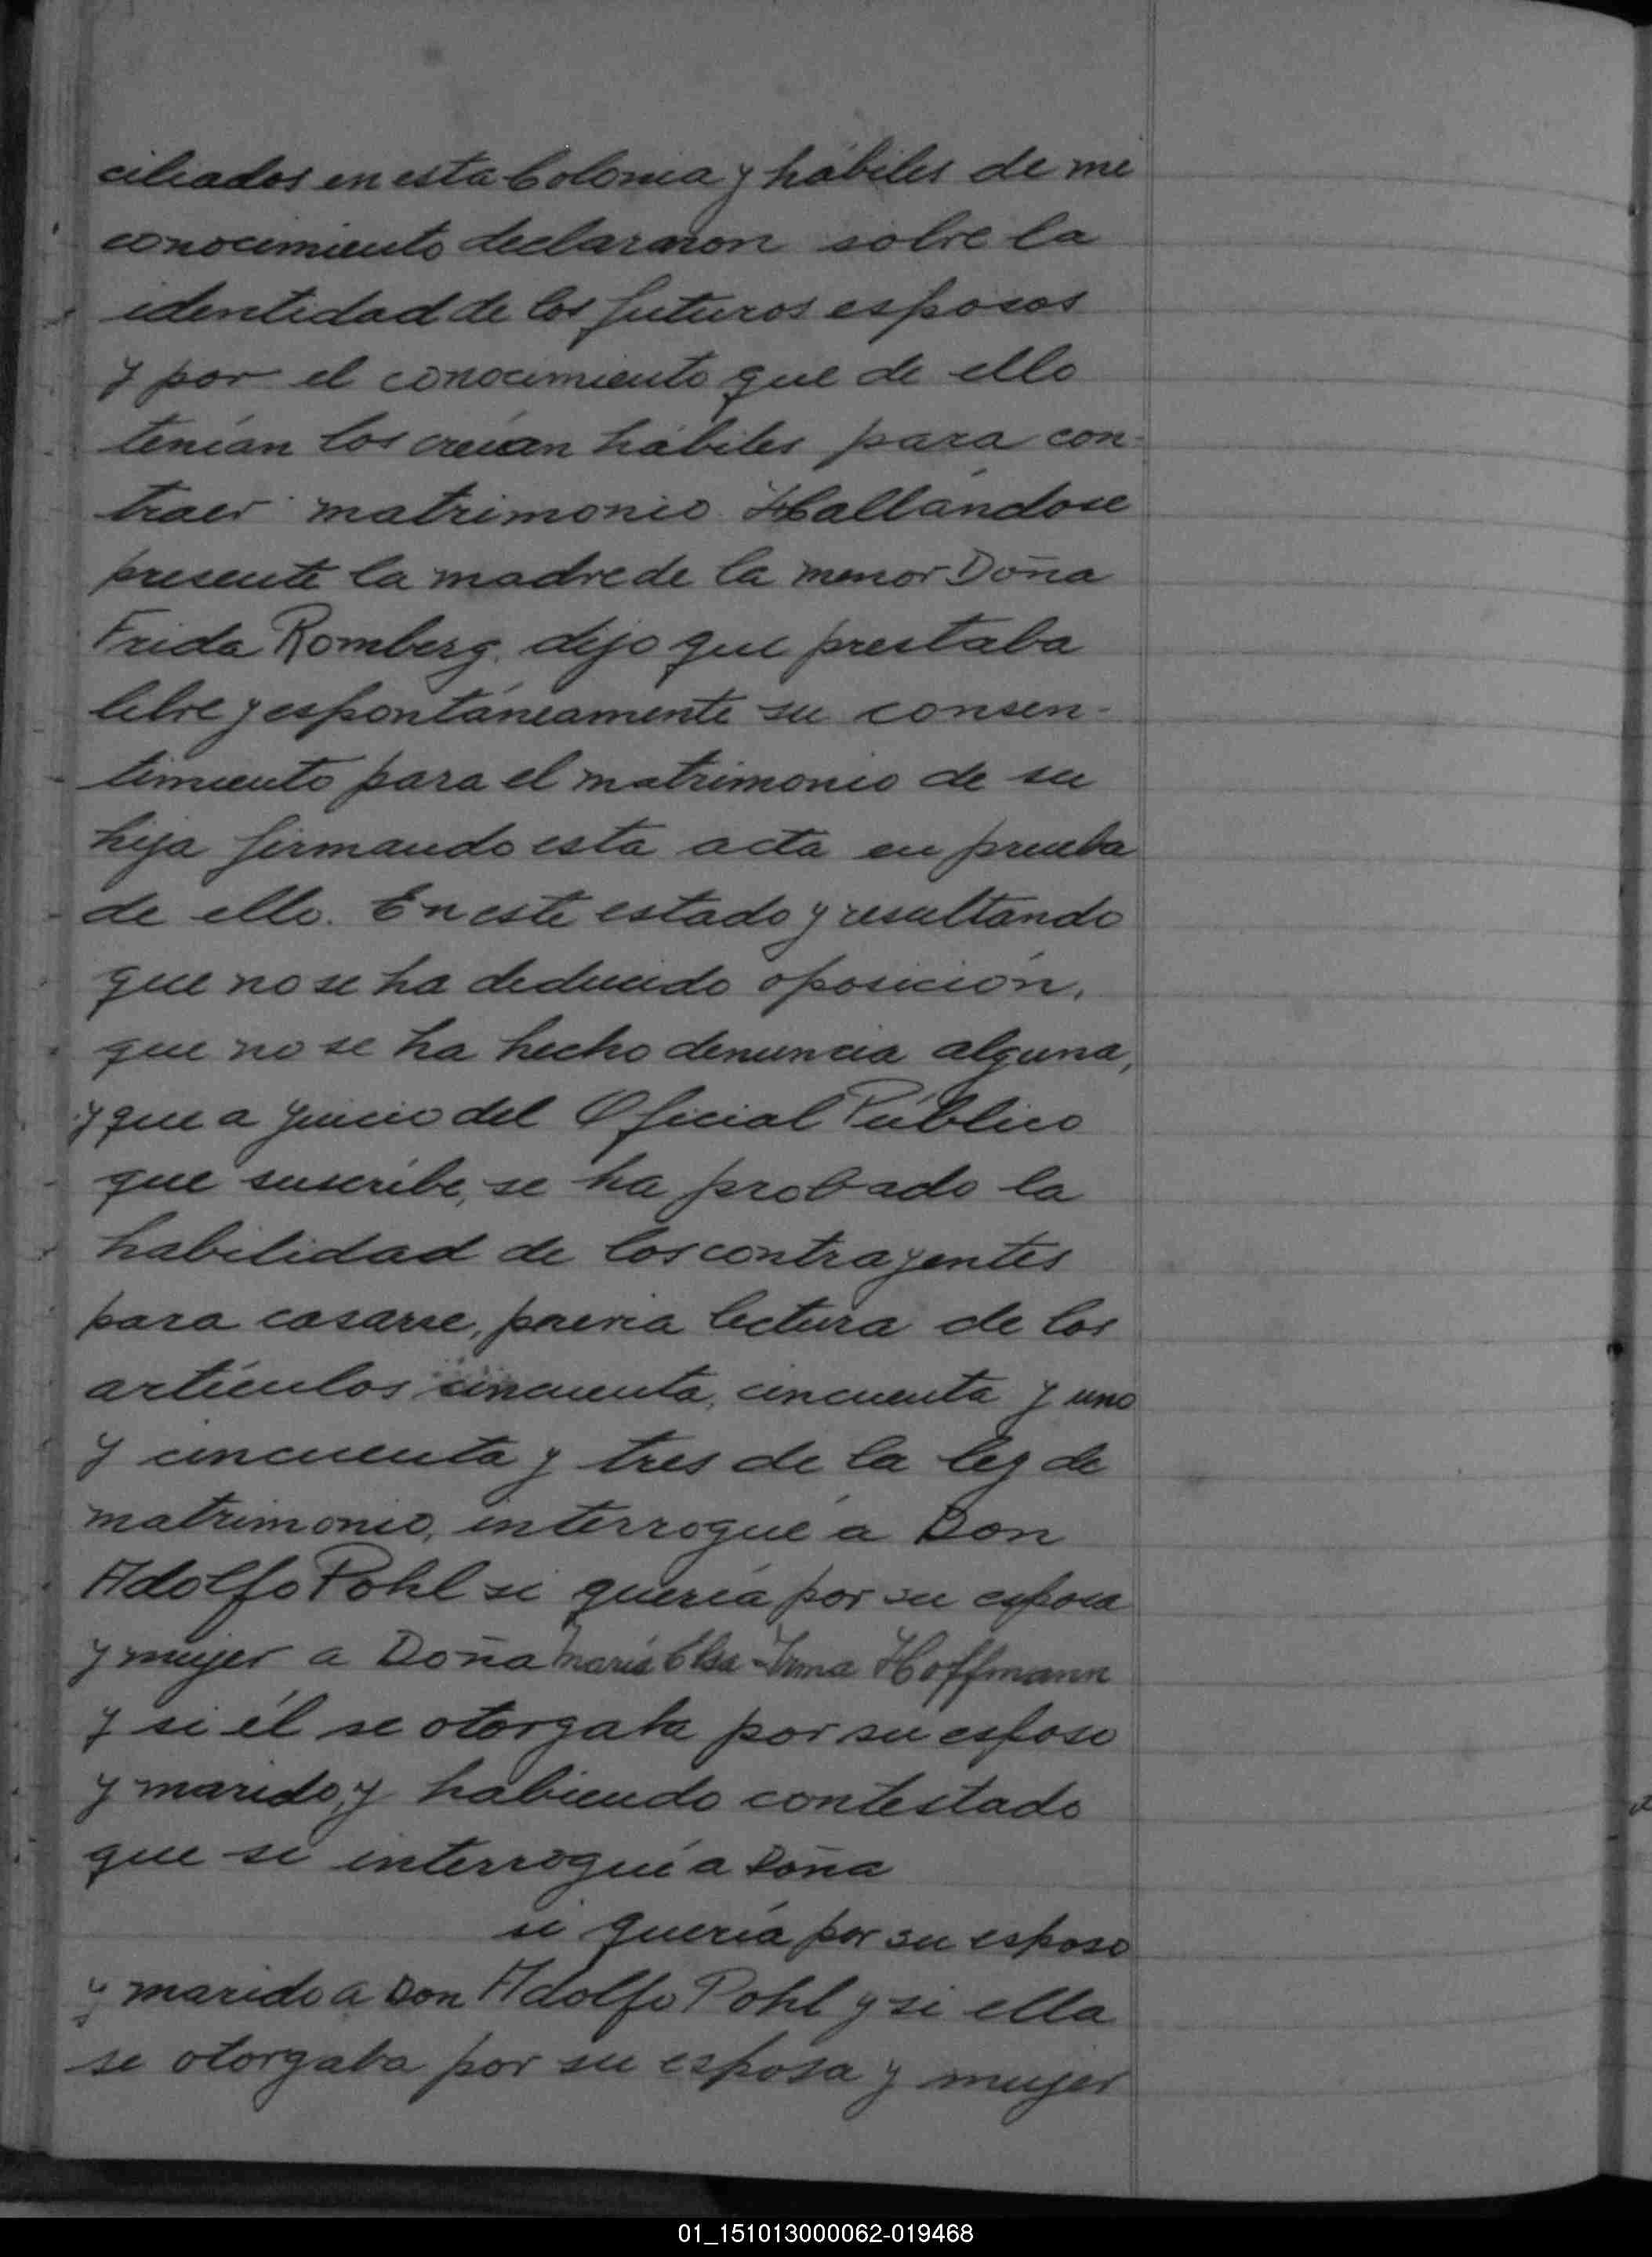 ciliados en esta Colonia y hábiles de mi
conocimiento declararon sobre la
identidad de los futuros esposos
y por el conocimiento que de ello
tenían los creían hábiles para con-
traer matrimonio. Hallándose
presente la madre de la menor Doña
Frida Romberg, dijo que prestaba
libre y espontáneamente su consen-
timiento para el matrimonio de su
hija firmando esta acta en prueba
de ello. En este estado y resultando
que no se ha deducido oposición,
que no se ha hecho denuncia alguna,
y que a juicio del Oficial Público
que suscribe, se ha probado la
habilidad de los contrayentes
para casarse, previa lectura de los
artículos cincuenta, cincuenta y uno
y cincuenta y tres de la ley de
matrimonio, interrogué a Don
Adolfo Pohl si quería por su esposa
y mujer a Doña María Elsa Irma Hoffmann
y si él se otorgaba por su esposo
y marido, y habiendo contestado
que si interrogué a Doña
si quería por su esposo
y marido a Don Adolfo Pohl y si ella
se otorgaba por su esposa y mujer
01_151013000062-019468